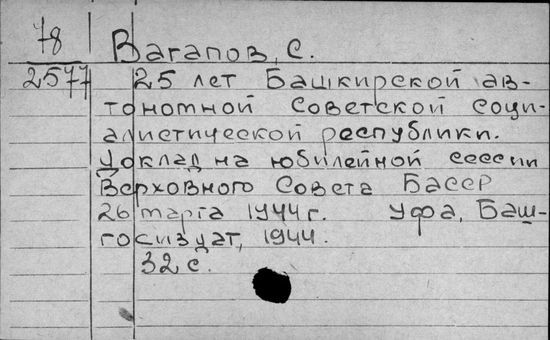 78
Вагапов, С.
2577
25 лет Башкирской ав-
тономной Советской соци-
алистической республики.
Доклад на юбилейной сессии
Верховного Совета БАССР
26 марта 1944 г. Уфа, Баш-
госиздат, 1944.
32 с.